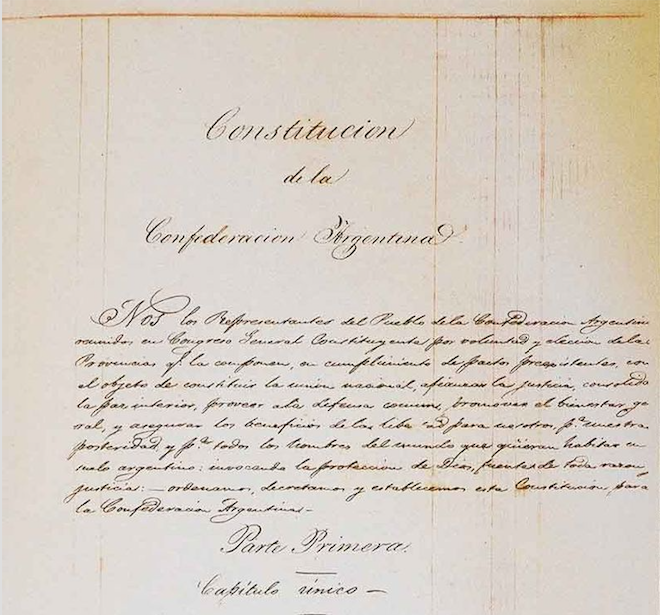 Constitucion
de la
Confederacion Argentina.
Nos los Representantes del Pueblo de la Confederacion Argentin
reunidos en Congreso General Constituyente por voluntad y eleccion de las
Provincias q.e la componen, en cumplimiento de pactos preexistentes, con
el objeto de constituir la union nacional, afianzar la justicia, consolida
la paz interior, proveer a la defensa comun, promover el bienestar ge
ral, y asegurar los beneficios de la libe ad para nosotros, p.a nuestra
posteridad, y p.a todos los hombres del mundo que quieran habitar en
suelo argentino: invocando la proteccion de Dios, fuente de toda razon
justicia: — ordenamos, decretamos y establecemos esta Constitucion, para
la Confederacion Argentina. —
Parte Primera.
Capítulo único —